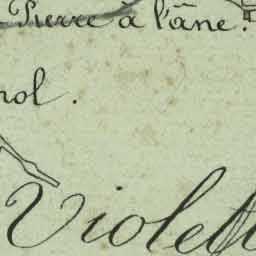 Pierre à l'âne.
nol.
Violett